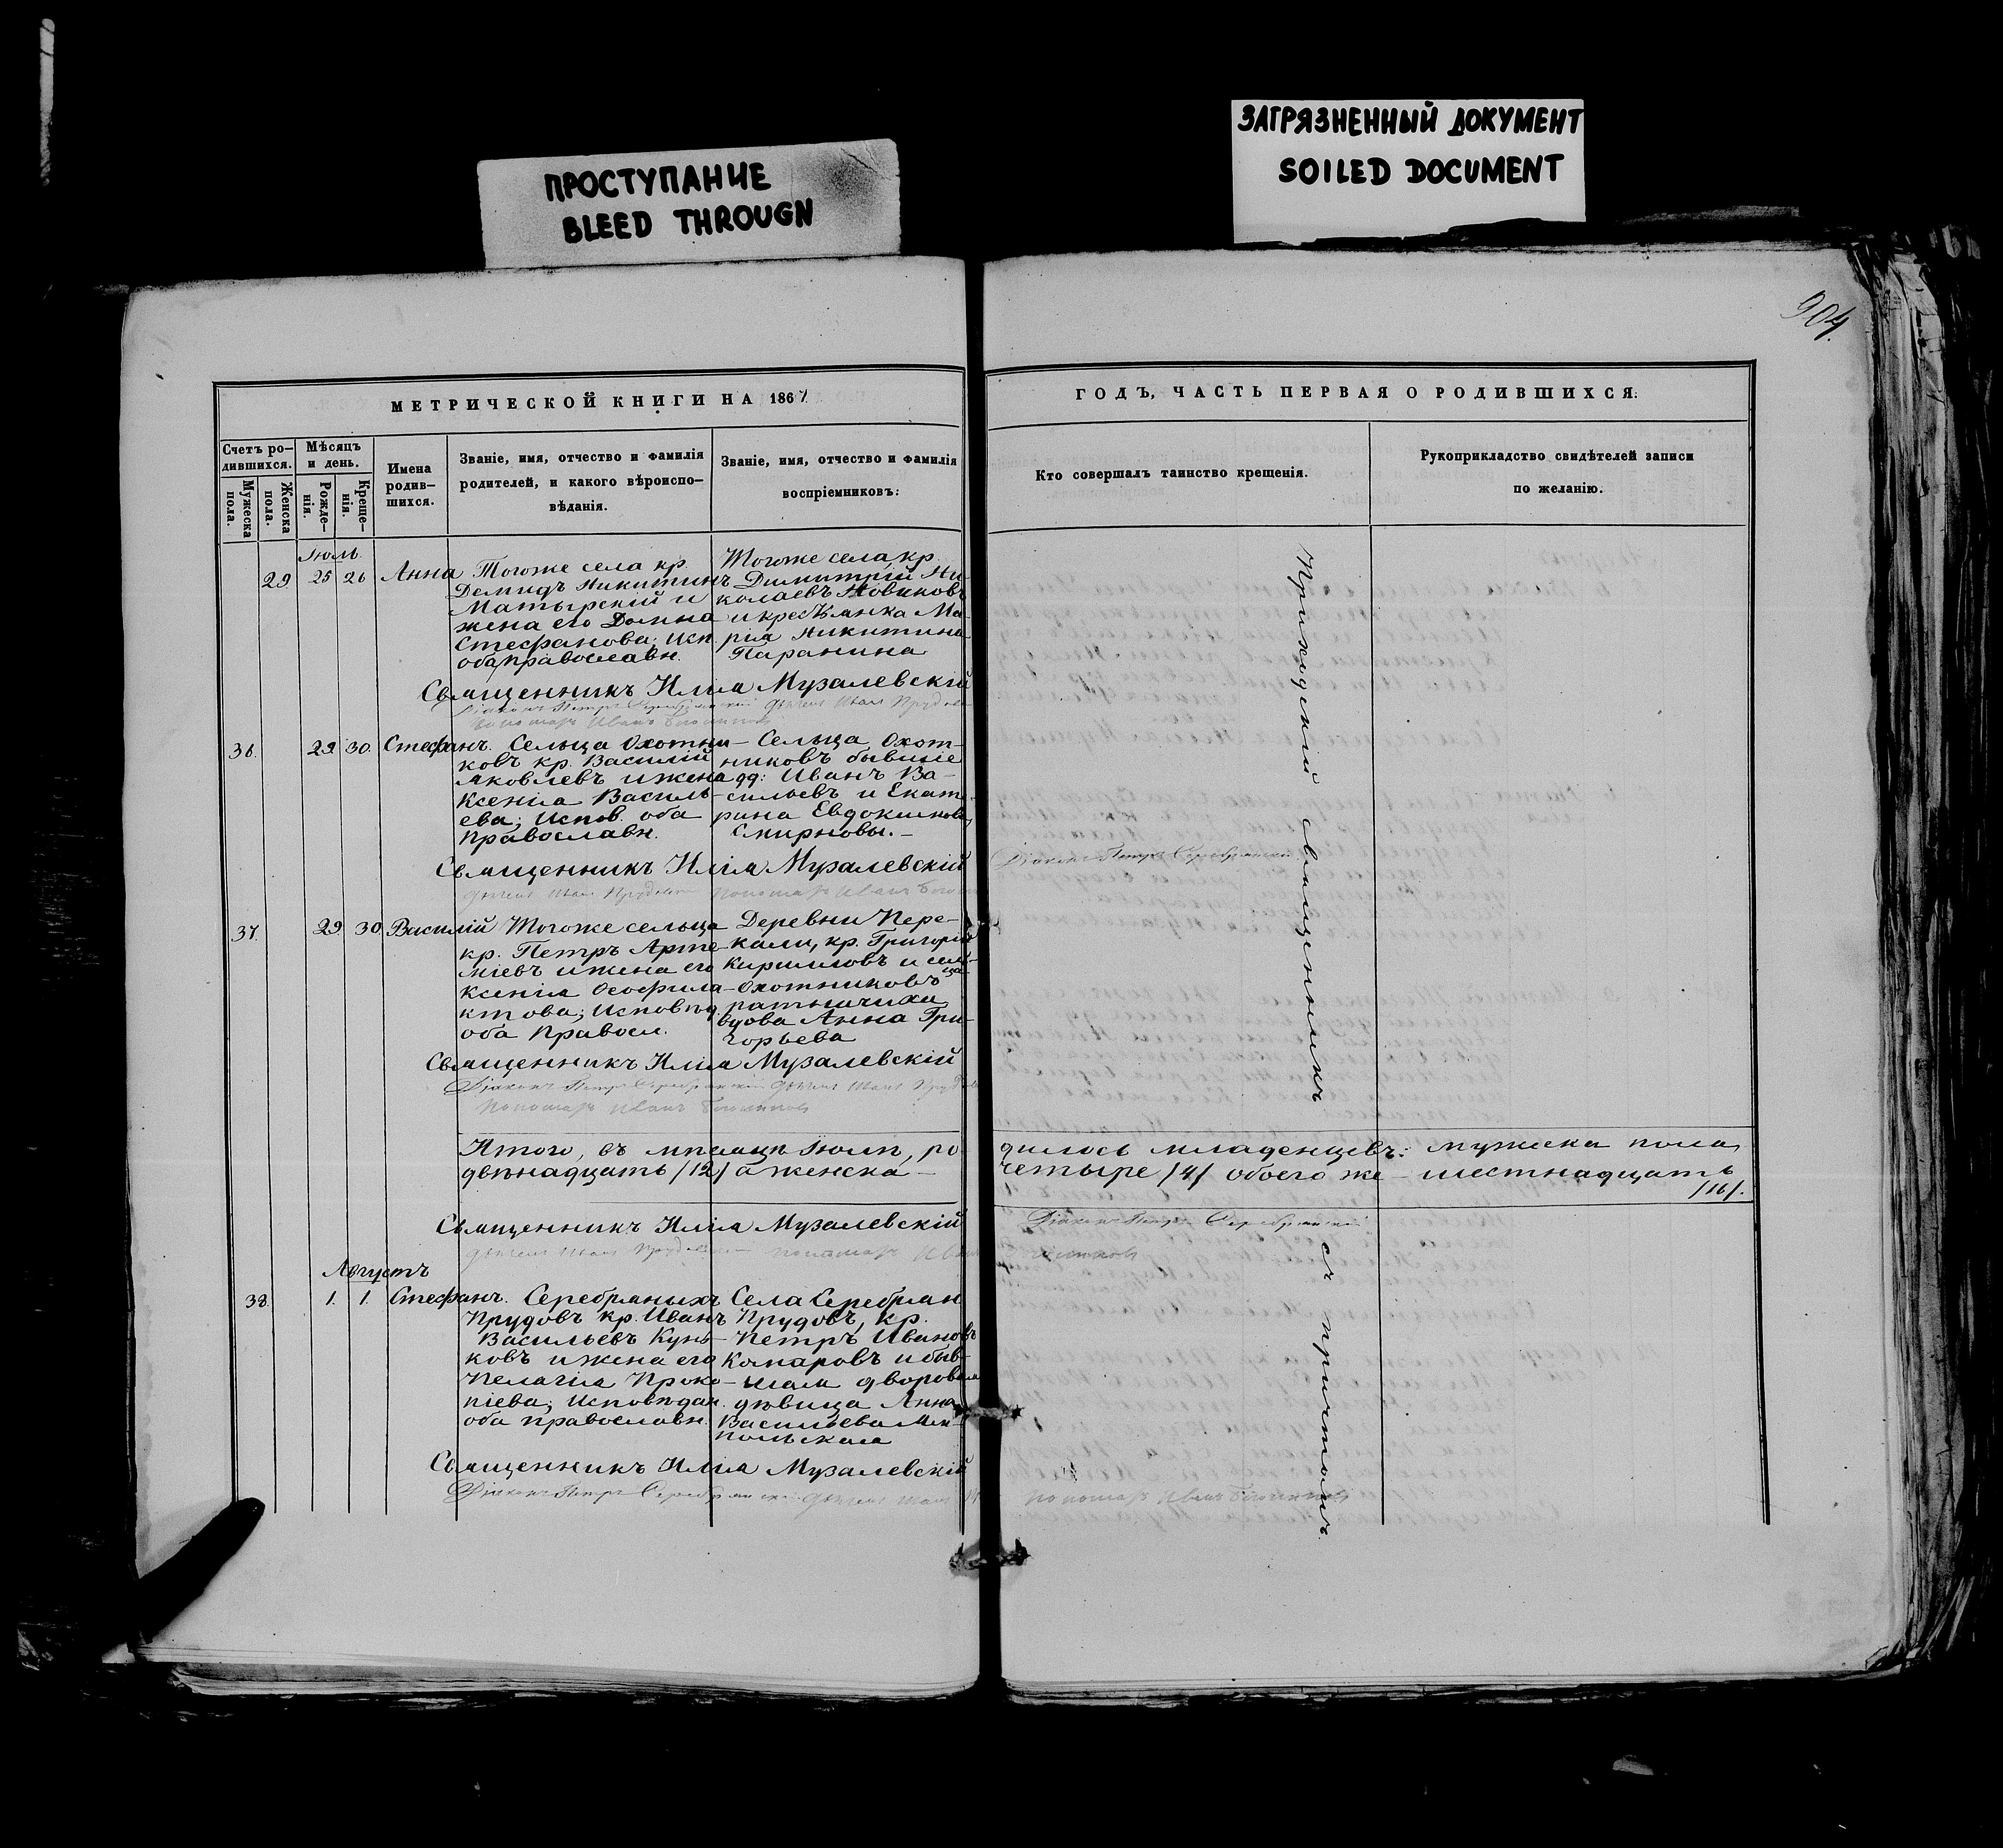 ПРОСТУПАНИЕ
BLEED THROUGN
ЗАГРЯЗНЕННЫЙ ДОКУМЕНТ
SOILED DOCUMENT
904.
МЕТРИЧЕСКОЙ КНИГИ НА 1867
ГОДЪ, ЧАСТЬ ПЕРВАЯ О РОДИВШИХСЯ:
Счетъ ро-
дившихся.
Мужеска
пола.
Женска
пола.
Мѣсяцъ
и день.
Рожде-
нія.
Креще-
нія.
Имена
родив-
шихся.
Званіе, имя, отчество и фамилія
родителей, и какого вѣроиспо-
вѣданія.
Званіе, имя, отчество и фамилія
воспріемниковъ:
Кто совершалъ таинство крещенія.
Рукоприкладство свидѣтелей записи
по желанію.
Іюль
29 25 26 Анна
Тогоже села кр.
Демидъ Никитинъ
Матырскій и
жена его Домна
Стефанова; Исп.
оба православн.
Тогоже села, кр.
Димитрій Ни-
колаевъ Новиковъ
и крестьянка Ма-
рія Никитина
Паранина
Священникъ Илія Музалевскій
Діаконъ Петръ Серебрянскій
Пономарь Иванъ
36. 29 30. Стефанъ.
Сельца Охотни-
ковъ кр. Василій
Яковлевъ и жена
Ксенія Василь-
ева; Испов. оба
православн.
Сельца Охот-
никовъ бывшіе
дд: Иванъ Ва-
сильевъ и Екате-
рина Евдокимова
Смирновы.-
Священникъ Илія Музалевскій
Діаконъ Петръ Серебрянскій
Пономарь Иванъ
37. 29 30 Василій
Тогоже сельца
кр. Петръ Арте-
міевъ и жена его
Ксенія Ѳеофила-
ктова; Исповѣд.
оба Правосл.
Деревни Пере-
кали, кр. Григорій
Кирилловъ и сель-
ца
Охотниковъ
ратничиха
вдова Анна Гри-
горьева
Священникъ Илія Музалевскій
Діаконъ Петръ Серебрянскій
Пономарь Иванъ
Итого, въ мѣсяцѣ Іюлѣ, ро
дилось младенцевъ: мужеска пола,
двѣнадцать /12/ а женска -
четыре /4/ обоего же - шестнадцать
/16/.
Священникъ Илія Музалевскій
Діаконъ Петръ Серебрянскій
Пономарь
Августъ
38. 1. 1. Стефанъ.
Серебряныхъ
Прудовъ кр. Иванъ
Васильевъ Кунь-
ковъ и жена его
Пелагія Проко-
піева; Исповѣдан.
оба православн.
Села Серебрян
Прудовъ, кр.
Петръ Ивановъ
Комаровъ и быв-
шая дворовая
дѣвица Анна
Васильева
польская
Священникъ Илія Музалевскій
Діаконъ Петръ Серебрянскій
Пономарь Иванъ
Приходскій священникъ
съ причтомъ.